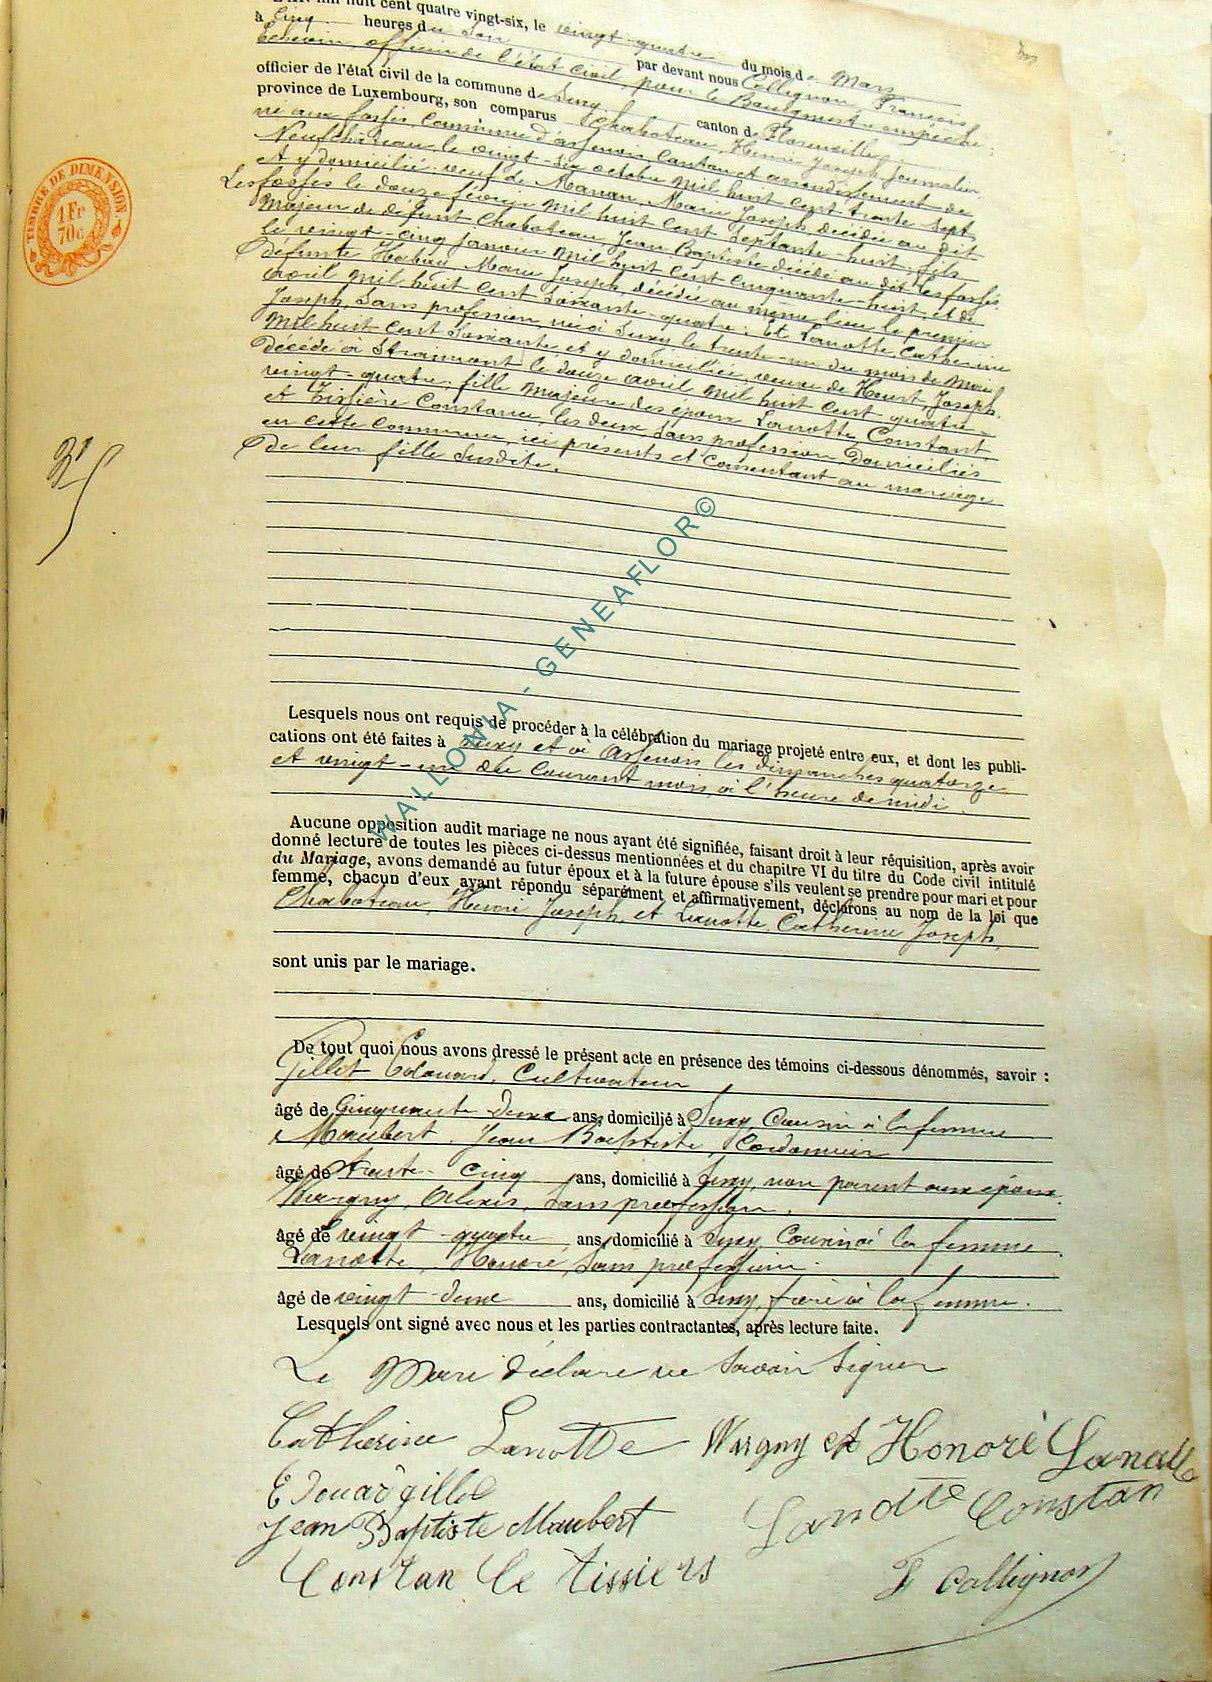 L'AN mil huit cent quatre vingt-six, le vingt-quatre du mois de Mars
à cinq heures du soir par devant nous Collignon, François,
Echevin, officier de l'état civil, pour le Bourgmestre empêché,
officier de l'état civil de la commune de Suxy, canton de Florenville,
province de Luxembourg, son comparus Chaboteau, Henri Joseph, Journalier
né aux fossés, commune d'Assenois, Canton et arrondissement de
Neufchâteau le vingt-six octobre mil huit cent trente-sept
et y domicilié, veuf de Marie Joseph, décédée au dit
Les fossés le douze février mil huit cent septante-huit, fils
Majeur de défunt Chaboteau, Jean Baptiste décédé au dit Les fossés
le vingt-cinq janvier mil huit cent cinquante-huit, et de
défunte Marie Joseph, décédée au même lieu le premier
avril mil huit cent soixante-quatre; Et Lanotte, Catherine
Joseph, sans profession, née à Suxy le trente-un du mois de Mars
Mil huit cent soixante et y domiciliée, veuve de Joseph,
décédé à Straimont le douze avril mil huit cent quatre-
vingt-quatre, fille majeure des époux Lanotte, Constant
et Tissière Constance, les deux sans profession domiciliés
en cette commune, ici présents et consentant au mariage
de leur fille susdite.
Lesquels nous ont requis de procéder à la célébration du mariage projeté entre eux, et dont les publi-
cations ont été faites à Suxy et à Assenois les dimanches quatorze
et vingt-un du courant mois, à l'heure de midi.
Aucune opposition audit mariage ne nous ayant été signifiée, faisant droit à leur réquisition, après avoir
donné lecture de toutes les pièces ci-dessus mentionnées et du chapitre VI du titre du Code civil intitulé
du Mariage, avons demandé au futur époux et à la future épouse s'ils veulent se prendre pour mari et pour
femme, chacun d'eux ayant répondu séparément et affirmativement, déclarons au nom de la loi que
Chaboteau, Henri Joseph, et Lanotte, Catherine Joseph,
sont unis par le mariage.
De tout quoi nous avons dressé le présent acte en présence des témoins ci-dessous dénommés, savoir :
Gillet Edouard, Cultivateur
âgé de Cinquante-deux ans, domicilié à Suxy, Cousin à la femme
Maubert, Jean Baptiste, Cordonnier
âgé de trente-cinq ans, domicilié à Suxy, non parent aux époux
Wargny, Alexis, sans profession,
âgé de vingt-quatre ans, domicilié à Suxy, Cousin à la femme
Lanotte, Honoré, sans profession.
âgé de vingt-deux ans, domicilié à Suxy, frère à la femme.
Lesquels ont signé avec nous et les parties contractantes, après lecture faite.
Le Mari déclare ne savoir signer
Catherine Lanotte Wargny et Honoré Lanotte
Edouar gillet
Lanotte Constan
Jean Baptiste Maubert
Constan Ce tissiers
F Collignon
TIMBRE DE DIMENSION
1 Fr
70c
WALLONIA - GENEAFLOR ©